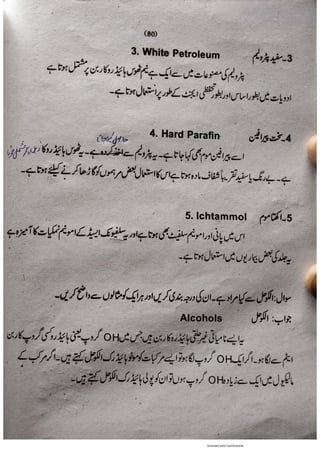 (80)
3۔سفید پٹرولیم 3. White Petroleum
پٹرولیم کی مصنوعات میں سے ایک ہے نیم ٹھوس ہائیڈروکاربن پر مشتمل ہوتا ہے
ادویات میں بطور اساس اور بطور حفاظتی ایجنٹ کے طور پر استعمال ہوتا ہے۔
4۔سخت پیرافین 4. Hard Parafin
اسے پیرافین موم بھی کہا جاتا ہے۔ یہ پٹرولیم سے اخذ کردہ ہے۔ یہ ٹھوس ہائیڈروکا
ہے۔ بے رنگ یا سفید تقریباً شفاف مادہ ہوتا ہے اس کا استعمال بعض مرہموں کو گاڑھا کرنے کیلئے ہوتا ہے۔
5۔اکتھا موم 5. Ichtammol
اس میں پانی اور امونیم سلفیٹ بھی ہوتا ہے اور یہ سلفیونک ایسڈ کے امونیم نمکیات کا آمیزہ ہے
یہ جلد کی بعض بیماریوں میں استعمال ہوتا ہے۔
سوال: الکوحل سے کیا مراد ہے۔ ان کی درجہ بندی کریں اور ہر ایک کو مثالوں سے واضح کریں۔
جواب: الکوحل Alcohols
یہ ایسے نامیاتی غیر حلقی ہائیڈروکاربن ہیں جس میں OH گروپ یعنی ہائیڈروکسی گروپ کاربن
ایٹم سے لگا ہو۔ اگر ایک OH گروپ لگا ہو تو ایسے مرکبات کو مونو ہائیڈرک الکوحل کہتے ہیں۔ اگر مرکب کے
مالیکیول میں ایک سے زیادہ OH گروپ ہوں تو ان کو پولی ہائیڈرک الکوحل کہتے ہیں۔
Scanned with CamScanner